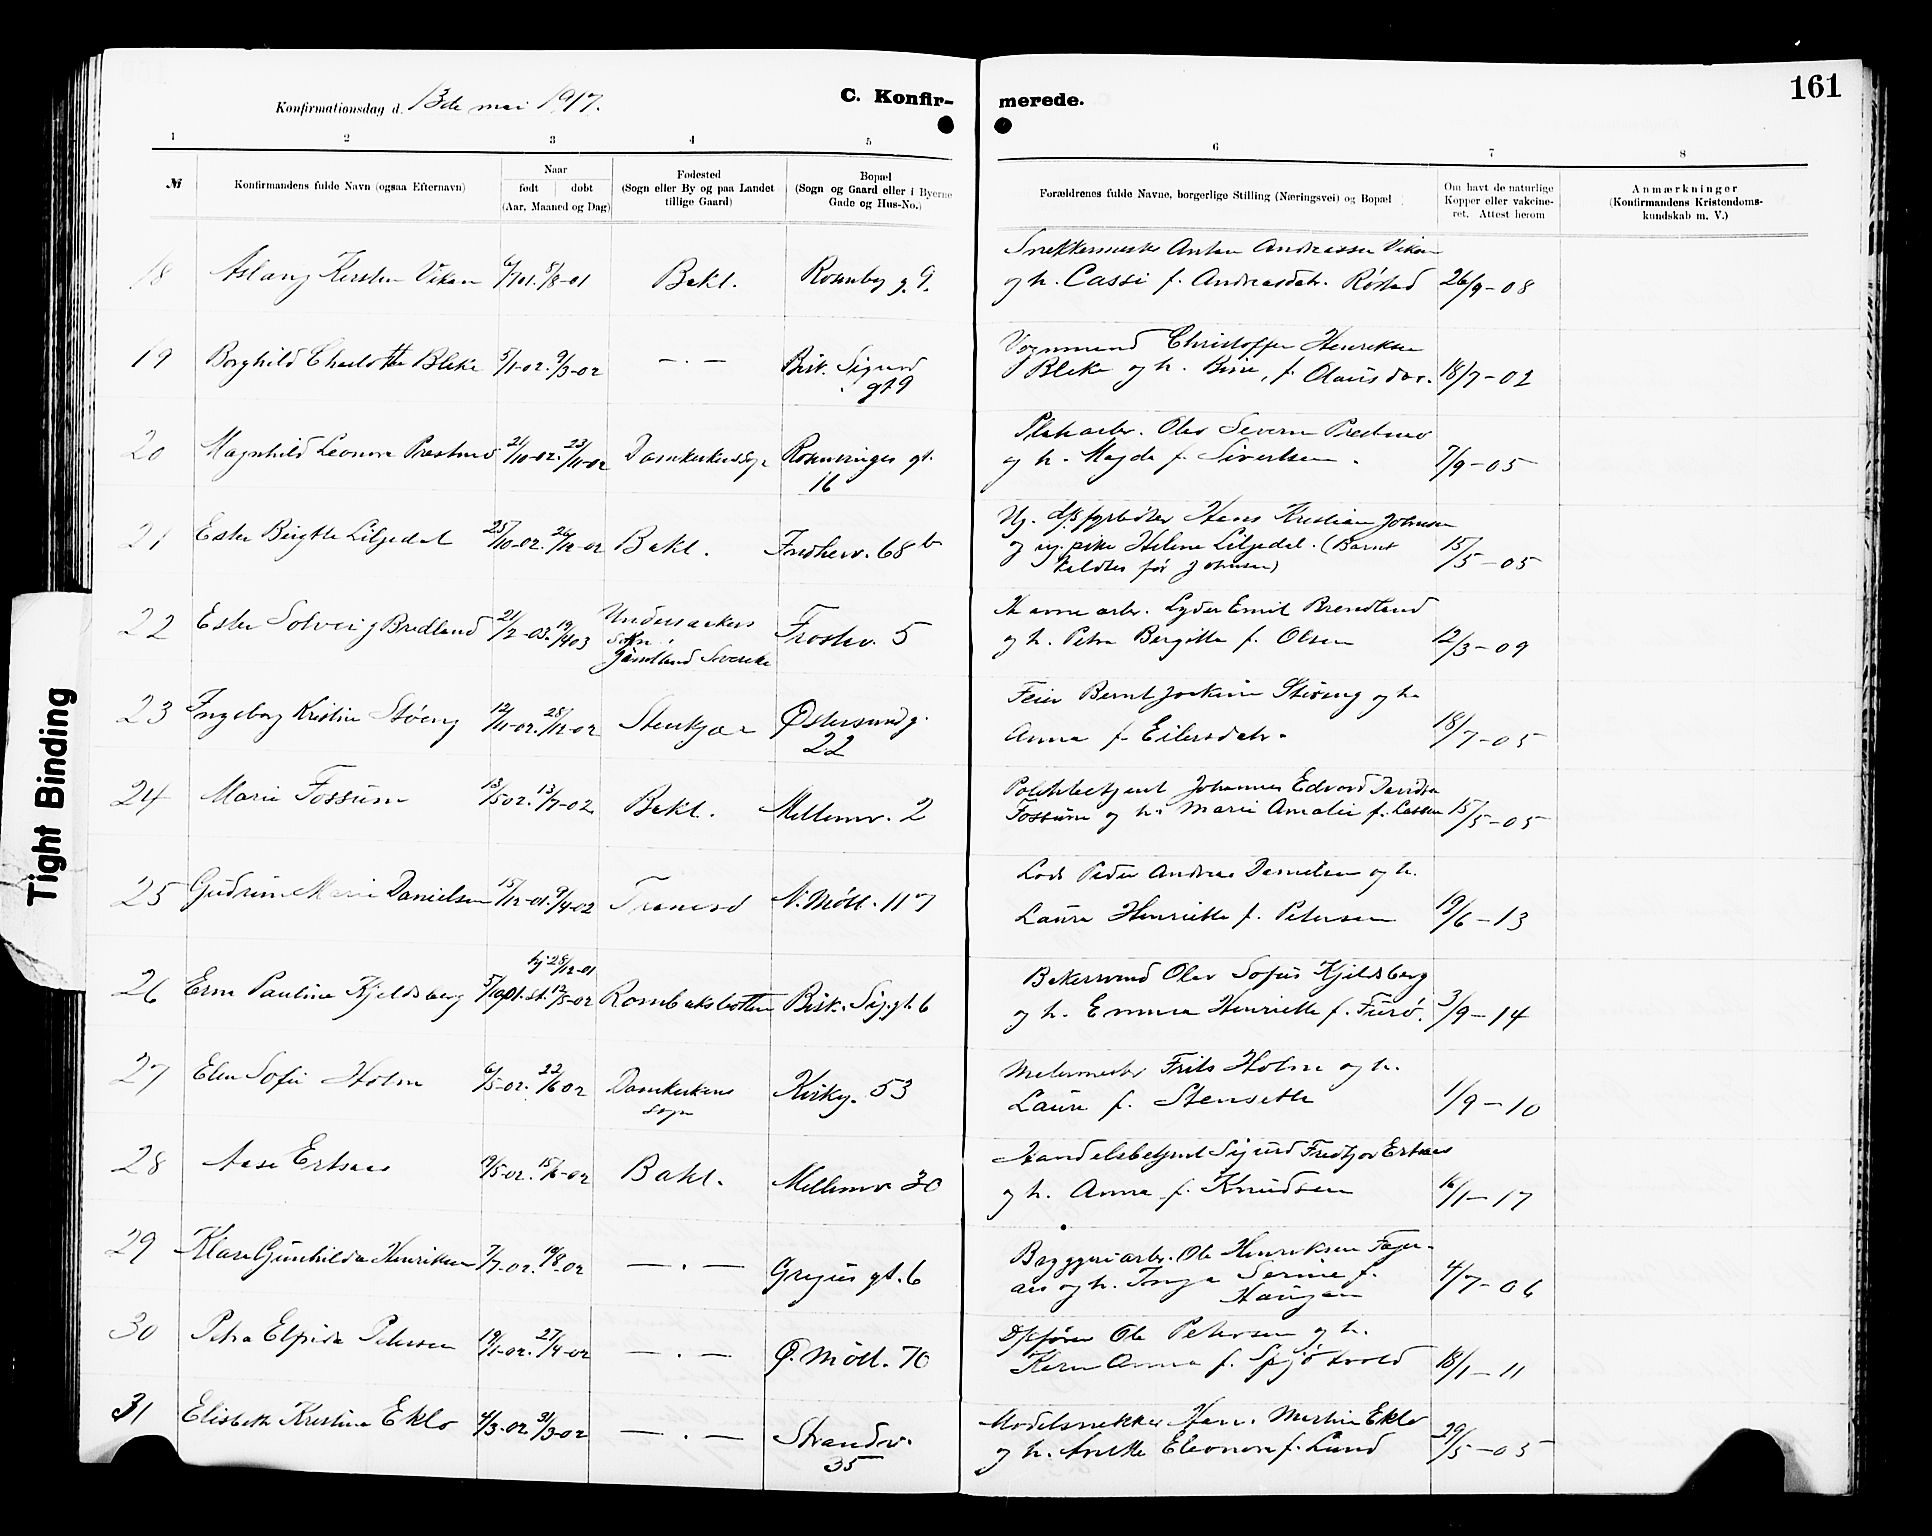 161
Konfirmationsdag d. 13de mai 1917.
C. Konfir- merede.
1 2 3 4 5 6 7 8
№
Konfirmandens fulde Navn (ogsaa Efternavn)
Naar
født | døbt
(Aar, Maaned og Dag)
Fødested
(Sogn eller By og paa Landet
tillige Gaard)
Bopæl
(Sogn og Gaard eller i Byerne
Gade og Hus-No.)
Forældrenes fulde Navne, borgerlige Stilling (Næringsvei) og Bopæl
Om havt de naturlige
Kopper eller vakcine-
ret. Attest herom
Anmærkninger
(Konfirmandens Kristendoms-
kundskab m. V.)
18 Aslaug Kirsten Viken 6/1 01. 5/8-01 Bakl. Rosenbg g. 9.
Snekkermester Anton Andreassen Viken
og h. Cassi f. Andreasdatr. Røstad 26/9-08
19 Borghild Charlotte Bleke 5/1-02. 9/3-02 — . — Bisk. Sigurd
gt 9
Vognmand Christoffer Henriksen
Bleke og h. f. Olausdtr. 18/7-02
20 Magnhild Leonora Præstmo 21/10-02. 23/11-02 Domkirkens sogn
16
Olav Severin Præstmo
og h. Magda f. Sivertsen. 7/9-05
21 Ester Birgitte Liljedal 25/10-02. 26/12-02 Bakl. Innherv. 68 b
Ug. d/s fyrbøter Hans Kristian Johnsen
og ug. pike Helene Liljedal. (Barnet
kaldtes før Johnsen) 15/5-05
22 Ester Solveig Bredland 21/2-03. 19/4 03 Undersaakers
sokn
Jämtland Sverike
Frostav. 5
arb. Lyder Emil Brendland
og h. Petra Bergitte f. Olsen 12/3-09
23 Ingeborg Kristine Støeng 12/11-02. 28/12-02 Stenkjær Østersundg.
22
Feier Bernt Joakim Støeng og h.
Anna f. Eilersdatr. 18/7-05
24 Marie Fossum 13/5 02. 13/7-02 Bakl. Mellemv. 2
Politibetjent Johannes Edvard Davidsen
Fossum og h. Marie Amalie f. Lassen 15/5-05
25 Gudrun Marie Danielsen 15/12-01. 9/4-02 N. Møll. 117
Lods Peder Andreas Danielsen og h.
Laura Henriette f. Petersen 19/6-13
26 Erna Pauline Kjeldsberg 5/10 01. hj 28/12-01 st. 12/5-02 Rombaksbotten Bisk. Sig. gt. 6
Bakersvend Olav Sofus Kjeldsberg
og h. Emma Henriette f. Furø. 3/9-14
27 Elen Sofie Holm 6/5-02. 22/6 02 Domkirkens
sogn
Kirkg. 53
Malermester Frits Holm og h.
Laura f. Stenseth 1/9-10
28 Aase Ertsaas 19/5-02. 15/6-02 Bakl. Mellemv. 30
Handelsbetjent Sigurd Fredtjov Ertsaas
og h. Anna f. Knudsen 16/1-17
29 Klara Gunhilda Henriksen 7/7-02. 19/8-02 — . — Gregus gt. 6
Bryggeriarb. Ole Henriksen Fager-
aas og h. Inga Serine f.
Haugan 4/7-06
30 Petra Elfrida Petersen 19/1-02. 27/4-02 — . — Ø. Møll. 70
D/sfører Ole Petersen og h.
Karen Anna f. Spjøtvold 18/1-11
31 Elisbeth Kristine Eklo 4/3-02. 31/3-02 — . — Strandv.
35
Modelsnekker Hans Martin Eklo
og h. Anette Eleonora f. Lund 29/5-05
Tight Binding